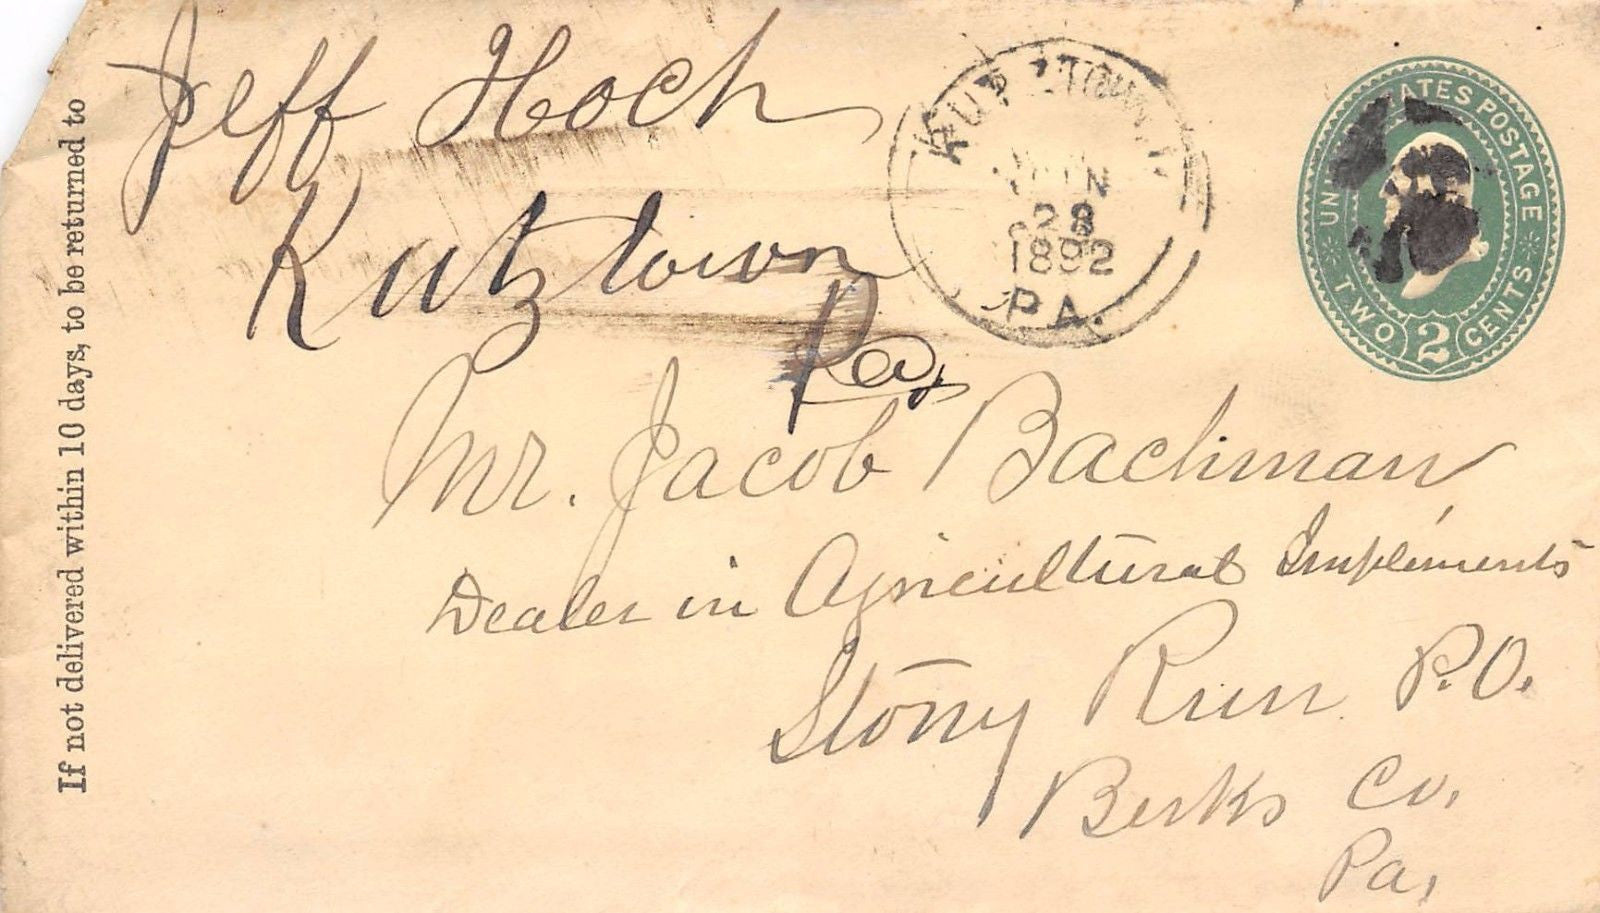 If not delivered within 10 days, to be returned to
Jeff Hoch
Kutztown
Pa.
KUTZTOWN
28
1892
PA.
UNITED STATES POSTAGE
TWO 2 CENTS
Mr. Jacob Bachman
Dealer in Agricultural Implements
Stony Run P.O.
Berks Co.
Pa.